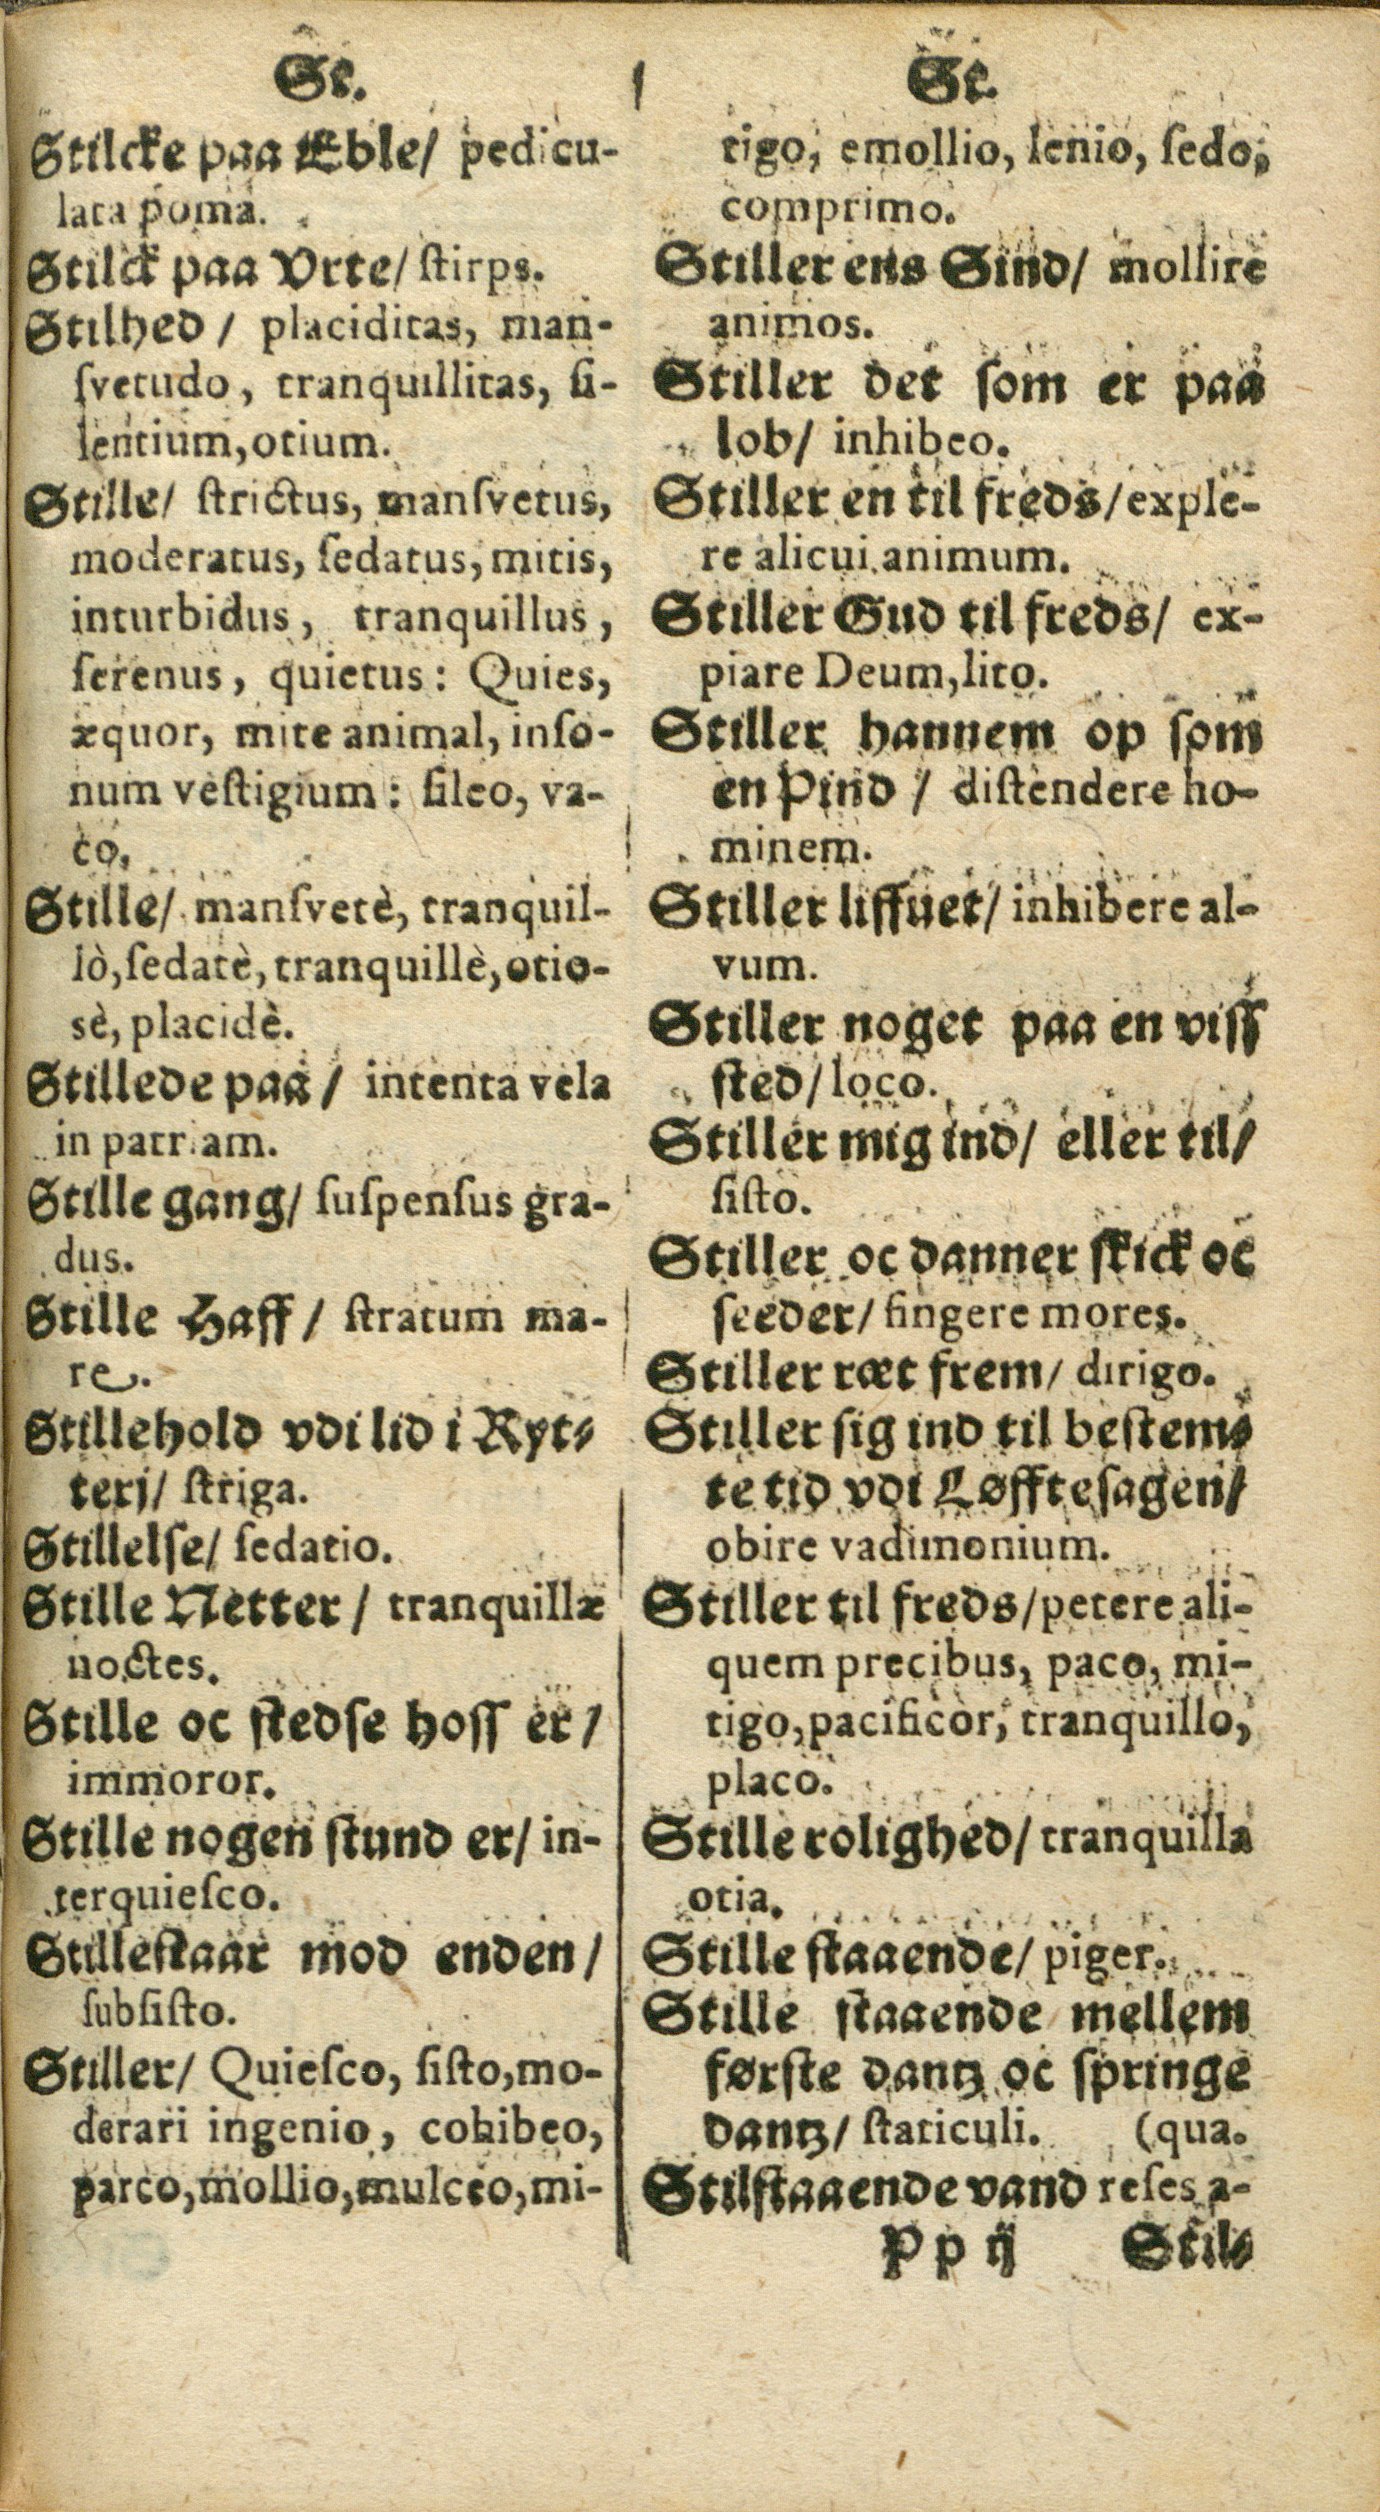 St.
Stilcke paa Eble/ pedicu-
lata poma.
Stilck paa Vrte/ ſtirps.
Stilhed / placiditas, man-
ſvetudo, tranquillitas, ſi-
lentium, otium.
Stille/ ſtrictus, manſvetus,
moderatus, ſedatus, mitis,
inturbidus, tranquillus,
ſerenus, quietus: Quies,
æquor, mite animal, inſo-
num veſtigium: ſileo, va-
co.
Stille/ manſvetè, tranquil-
lò, ſedatè, tranquillè, otio-
sè, placidè.
Stillede paa / intenta vela
in patriam.
Stille gang/ ſuſpenſus gra-
dus.
Stille Haff / ſtratum ma-
re.
Stillehold vdi lid i Ryt-
terj/ ſtriga.
Stillelſe/ ſedatio.
Stille Netter / tranquillæ
noctes.
Stille oc ſtedſe hoſſ er /
immoror.
Stille nogen ſtund er/ in-
terquieſco.
Stilleſtaar mod enden /
ſubſiſto.
Stiller/ Quieſco, ſiſto, mo-
derari ingenio, cohibeo,
parco, mollio, mulceo, mi-
St.
tigo, emollio, lenio, ſedo,
comprimo.
Stiller ens Sind/ mollire
animos.
Stiller det ſom er paa
lob/ inhibeo.
Stiller en til freds/ exple-
re alicui animum.
Stiller Gud til freds/ ex-
piare Deum, lito.
Stiller hannem op ſom
en Pind / diſtendere ho-
minem.
Stiller liffuet/ inhibere al-
vum.
Stiller noget paa en viſſ
ſted/ loco.
Stiller mig ind/ eller til/
ſiſto.
Stiller oc danner ſkick oc
ſeeder/ fingere mores.
Stiller ræt frem/ dirigo.
Stiller ſig ind til beſtem-
te tid vdi Løffteſagen/
obire vadimonium.
Stiller til freds/ petere ali-
quem precibus, paco, mi-
tigo, pacificor, tranquillo,
placo.
Stille rolighed/ tranquilla
otia.
Stille ſtaaende/ piger.
Stille ſtaaende mellem
førſte dantz oc ſpringe
dantz/ ſtaticuli. (qua.
Stilſtaaende vand reſes a-
P p ij Stil-